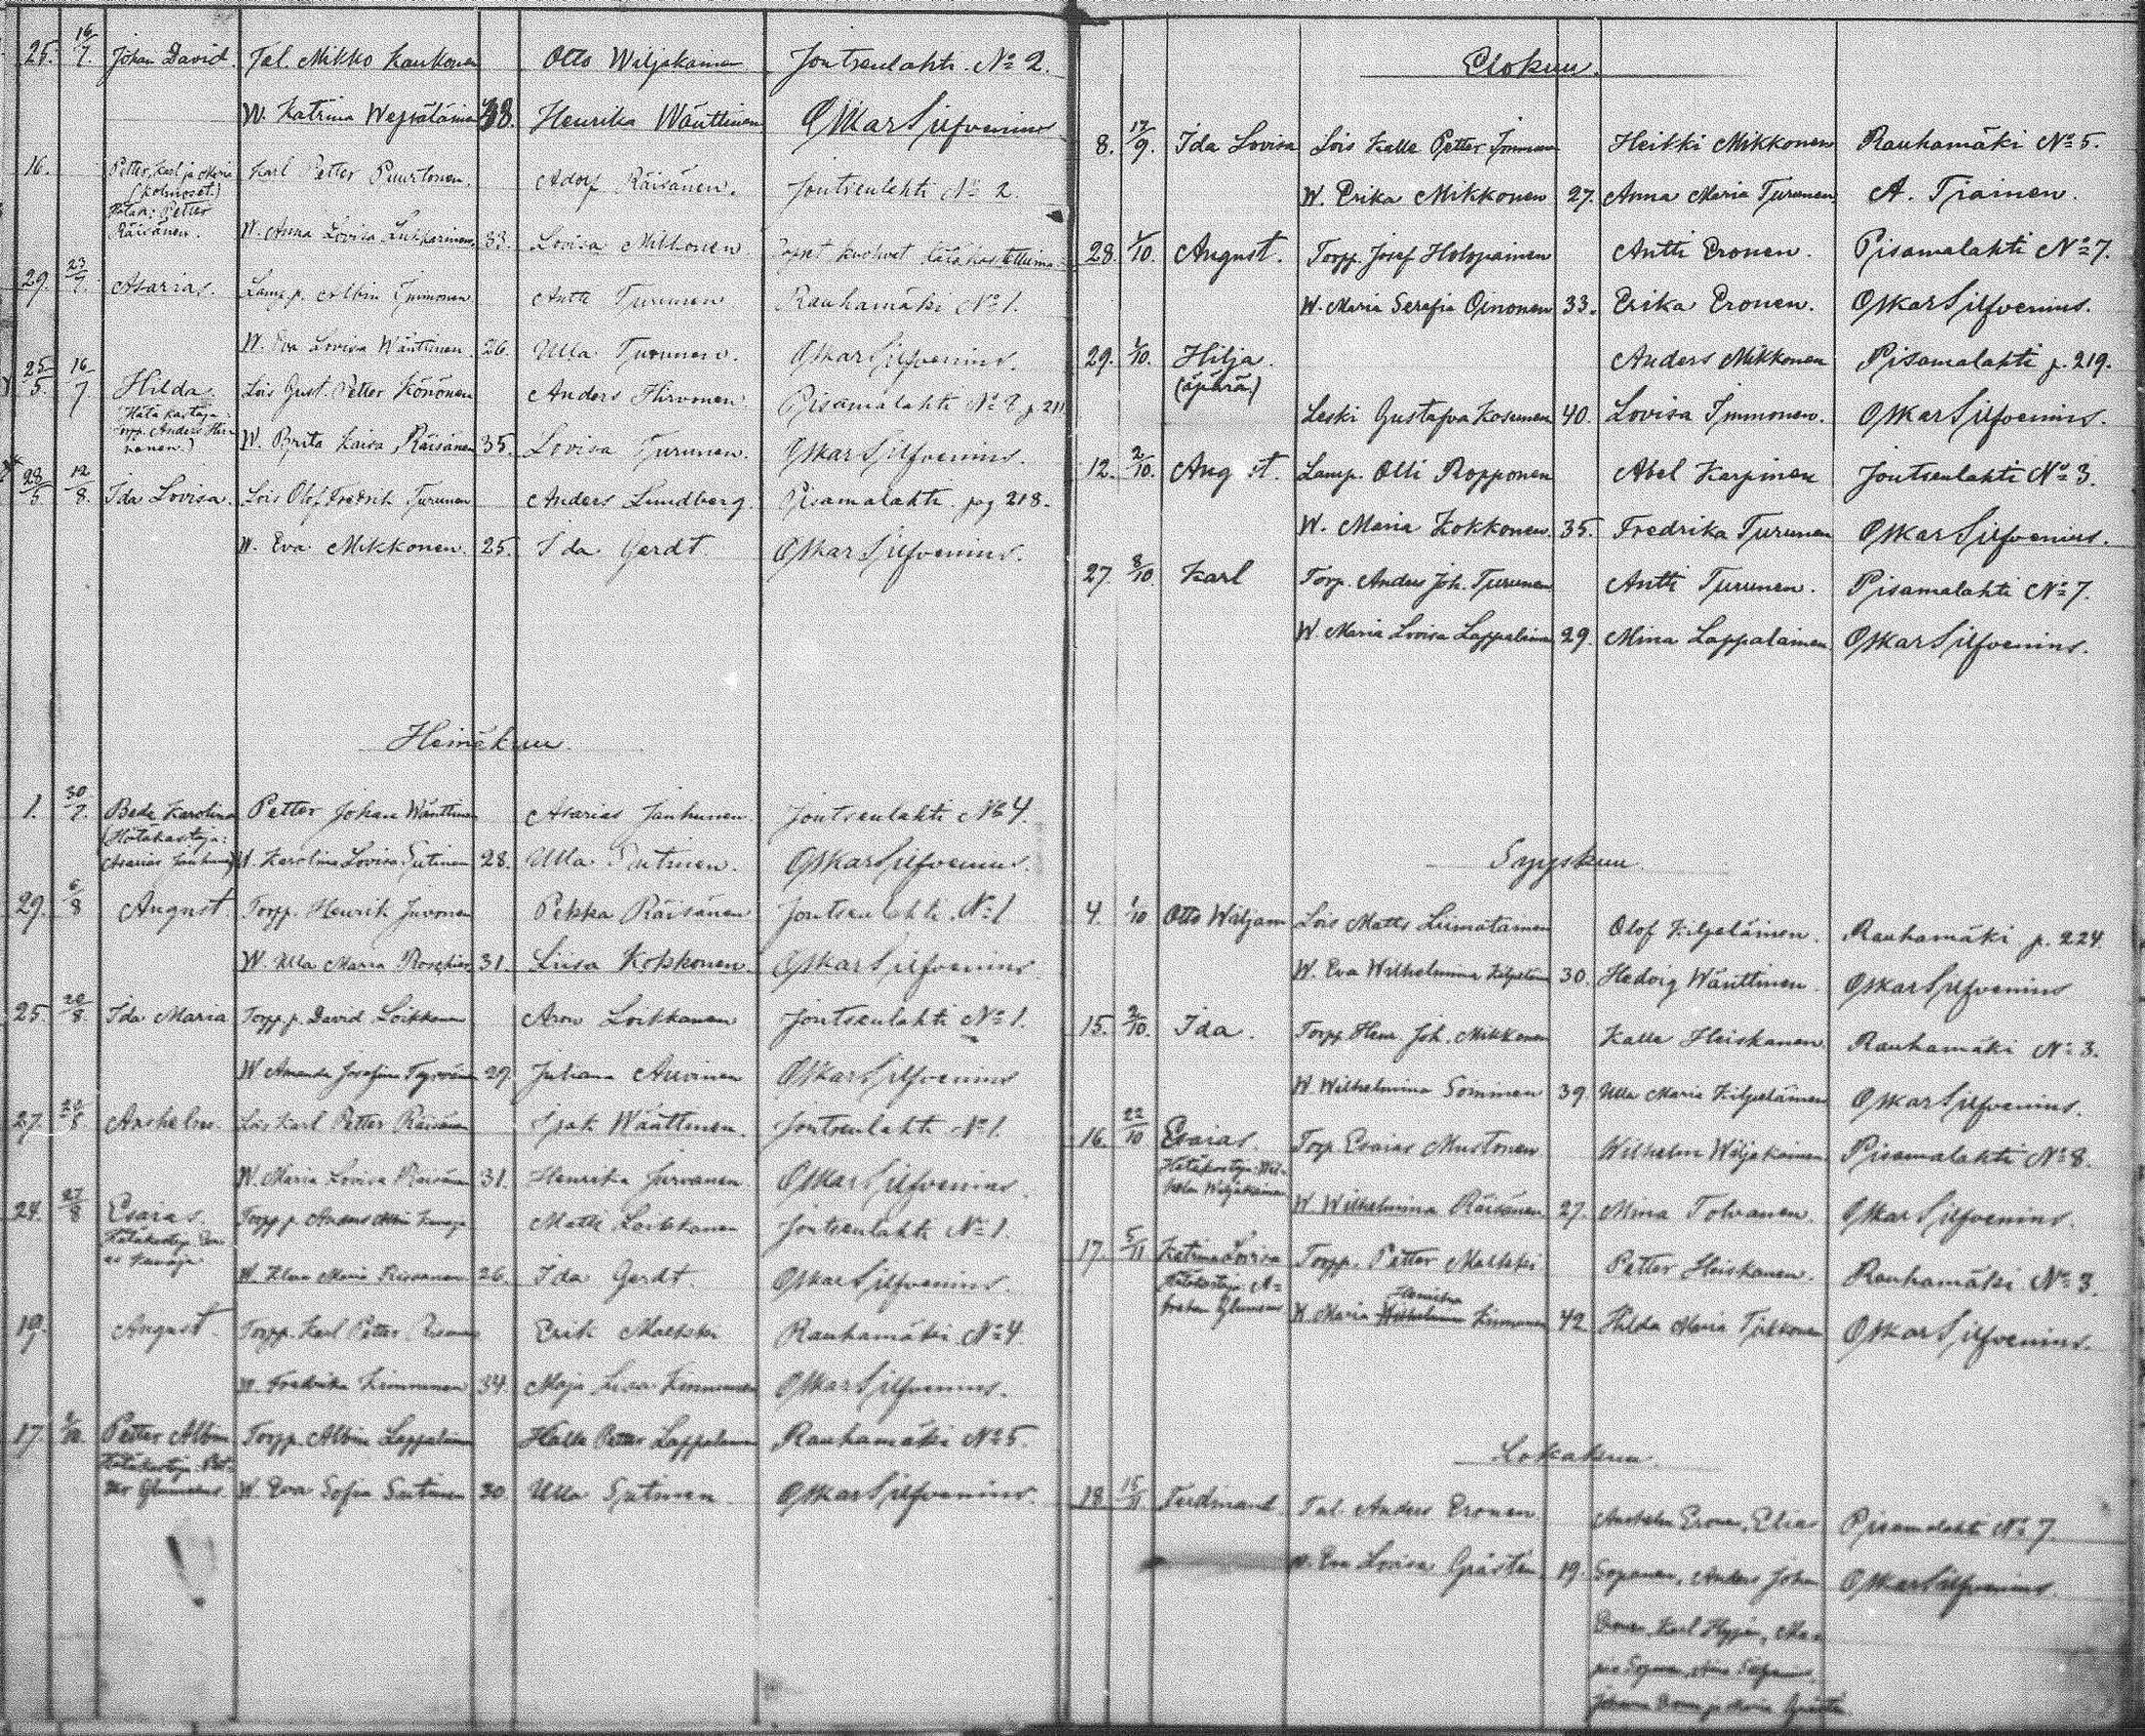 25. 16/7. Johan David. Tal. Mikko Kaukonen Otto Wiljakainen Joutsenlahti No 2.
W. Katrina 38. Henrika Wänttinen Oskar Silfvenius
16. Petter, Karl ja Karl Petter Puurtonen. Adolf Räisänen. Joutsenlahti No 2.
(kolmoset)
Hätäk: Petter
Räisänen. W. Anna Lovisa Lukkarinen. 33. Lovisa Mikkonen. Lapset kuolivat hätäkastettuina.
29. 23/7. Asarias. Lamp. Albin Immonen Antti Turunen Rauhamäki No 1.
W. Eva Lovisa Wänttinen. 26. Ulla Turunen. Oskar Silfvenius.
25/5. 16/7 Hilda. Lois Gust. Petter Könönen Anders Hirvonen Pisamalahti No 8 p. 211
(Hätäkastaja:
Torp. Anders Hir-
vonen.) W. Brita Kaisa Räisänen 35. Lovisa Turunen. Oskar Silfvenius.
28/5 12/8. Ida Lovisa. Lois Olof Fredrik Turunen Anders Lundberg. Pisamalahti pag 218.
W. Eva Mikkonen. 25. Ida Gerdt Oskar Silfvenius.
Heinäkuu.
1. 30/7. Beda Karolina Petter Johan Wänttinen Asarias Janhunen. Joutsenlahti No 4.
(Hätäkastaja:
Asarias Janhunen) W. Karolina Lovisa Sutinen 28. Ulla Sutinen. Oskar Silfvenius.
29. 6/8 August. Torpp. Henrik Juvonen Pekka Räisänen Joutsenlahti No 1
W. Ulla Maria 31. Liisa Kokkonen. Oskar Silfvenius
25. 20/8. Ida Maria Torpp. p. David Loikkanen Aron Loikkanen Joutsenlahti No 1.
W. Amanda Josefina 29. Juliana Auvinen Oskar Silfvenius
27. Anshelm. Lois Karl Petter Räisänen Wänttinen. Joutsenlahti No 1.
W. Maria Lovisa Räisänen 31. Henrika Oskar Silfvenius.
24. 27/8 Esaias. Torpp. p. Anders Matti Loikkanen Joutsenlahti No 1.
Hätäkastaja
W. Maria 26. Ida Gerdt. Oskar Silfvenius.
19. August. Torpp. Karl Petter Erik Malkki Rauhamäki No 4.
W. Fredrika Kinnunen 34. Maja Liisa Kinnunen Oskar Silfvenius.
17. Petter Albin Torpp. Albin Lappalainen Kalle Petter Lappalainen Rauhamäki No 5.
Hätäkastaja Pet-
W. Eva Sofia Sutinen 30. Ulla Sutinen Oskar Silfvenius.
Elokuu.
8. 17/9. Ida Lovisa Lois Kalle Petter Immonen Heikki Mikkonen Rauhamäki No 5.
W. Erika Mikkonen 27. Anna Maria Turunen A. Tiainen.
28. 1/10. August. Torpp. Josef Holopainen Antti Eronen. Pisamalahti No 7.
W. Maria Serafia Oinonen 33. Erika Eronen. Oskar Silfvenius.
29. 1/10. Hilja. Anders Mikkonen Pisamalahti p. 219.
(äpärä)
Leski Gustafva Kosunen 40. Lovisa Immonen. Oskar Silfvenius.
12. 2/10. August. Lamp. Olli Ropponen Abel Karpinen Joutsenlahti No 3.
W. Maria Kokkonen. 35. Fredrika Turunen Oskar Silfvenius.
27. 8/10. Karl Torp. Anders Joh. Turunen Antti Turunen. Pisamalahti No 7.
W. Maria Lovisa Lappalainen 29. Mina Lappalainen. Oskar Silfvenius.
Syyskuu.
4. 1/10 Otto Wiljam Lois Matts Liimatainen Olof Kilpeläinen. Rauhamäki p. 224.
W. Eva Wilhelmina Kilpeläinen 30. Hedvig Wänttinen. Oskar Silfvenius
15. 2/10. Ida. Torpp. Henr. Joh. Mikkonen Kalle Heiskanen. Rauhamäki No 3.
W. Wilhelmina Sominen 39. Ulla Maria Kilpeläinen Oskar Silfvenius.
16. 22/10 Esaias. Torp. Esaias Mustonen Wilhelm Wiljakainen. Pisamalahti No 8.
Hätäkastaja: Wil-
helm Wiljakainen W. Wilhelmina Räisänen 27. Mina Tolvanen. Oskar Silfvenius.
17. 5/11 Katrina Lovisa Torpp. Petter Malkki Petter Heiskanen. Rauhamäki No 3.
Hätäkastaja: A-
Henrika
W. Maria Wilhelmina Kinnunen 42 Hilda Maria Oskar Silfvenius.
Lokakuu.
18. 15/11 Ferdinand. Tal. Anders Eronen Anshelm Eronen, Elias Pisamalahti No 7.
W. Eva Lovisa Gråsten. 19. Sopanen, Anders Johan Oskar Silfvenius.
Eronen, Karl